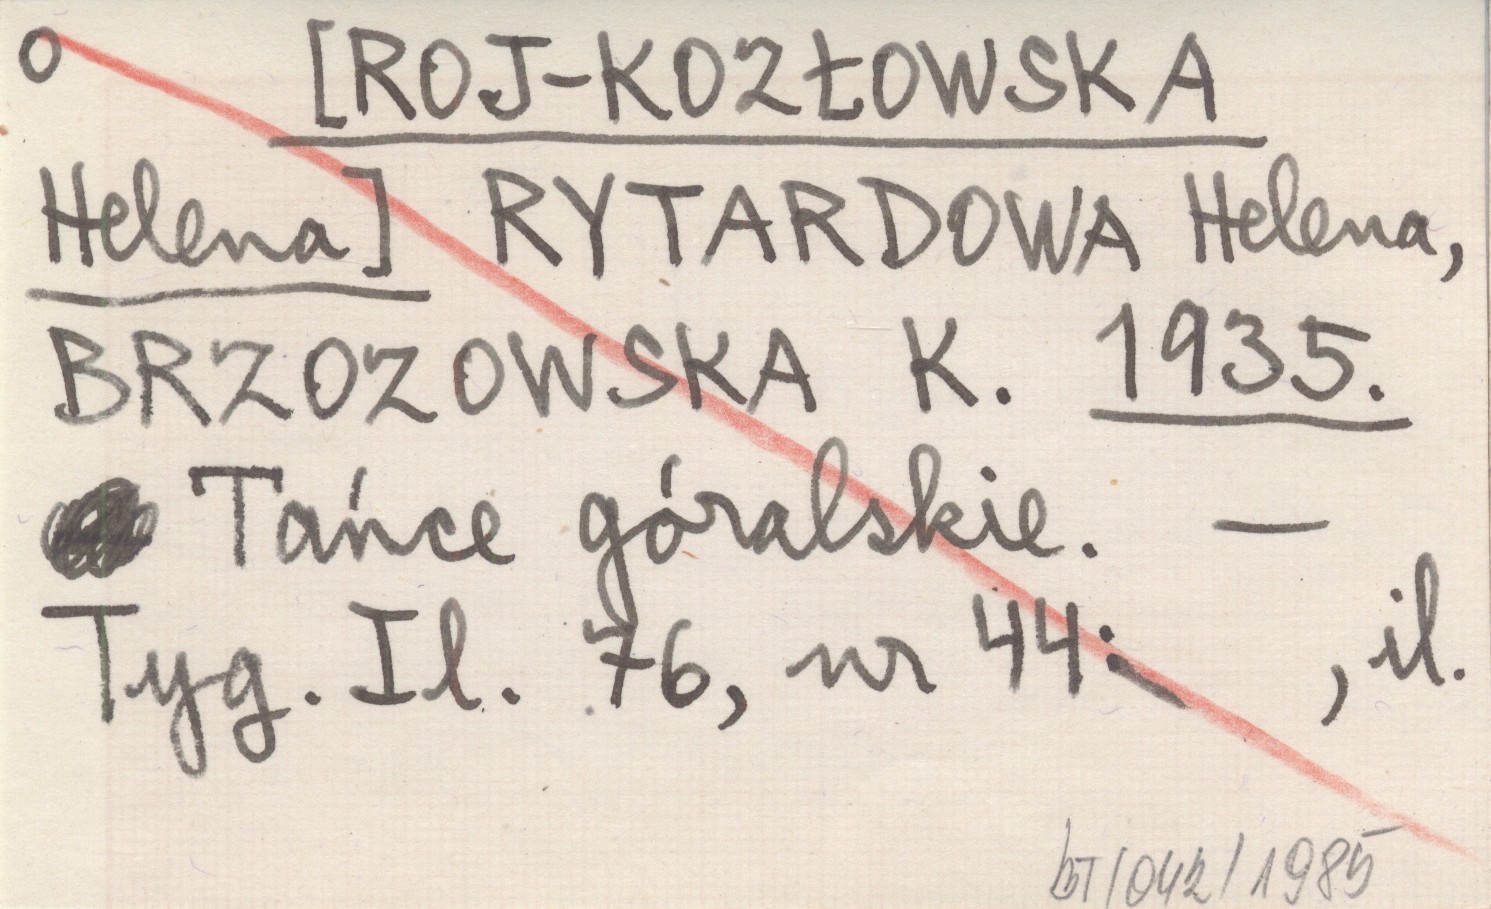 o [ROJ-KOZŁOWSKA
Helena] RYTARDOWA Helena,
BRZOZOWSKA K. 1935.
Tańce góralskie. —
Tyg. Il. 76, nr 44: , il.
bT/042/1985